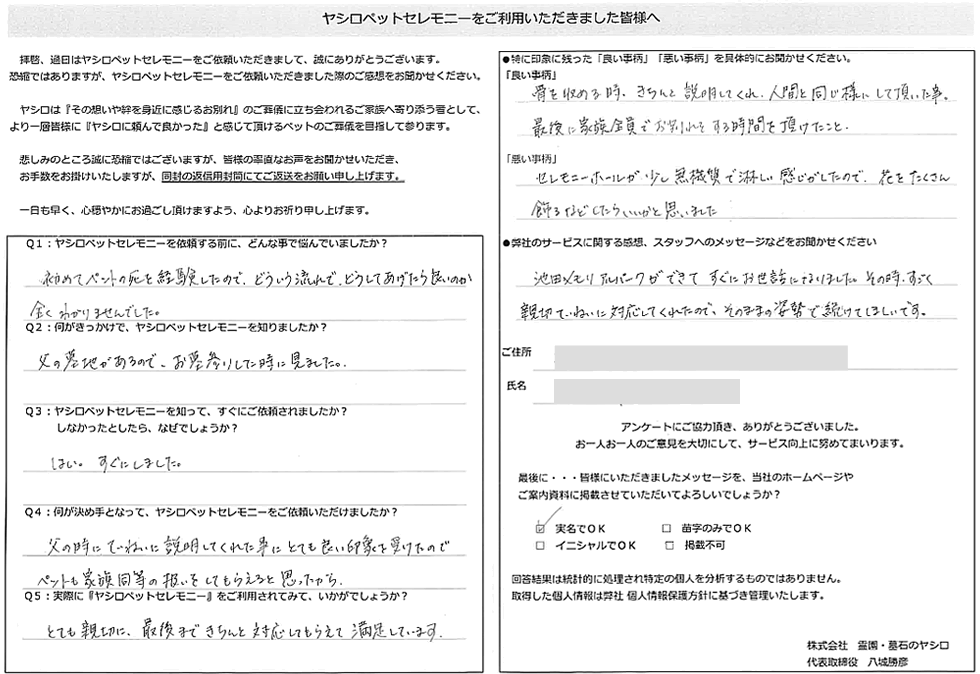 ヤシロペットセレモニーをご利用いただきました皆様へ
拝啓、過日はヤシロペットセレモニーをご依頼いただきまして、誠にありがとうございます。
恐縮ではありますが、ヤシロペットセレモニーをご依頼いただきました際のご感想をお聞かせください。
ヤシロは『その想いや絆を身近に感じるお別れ』のご葬儀に立ち会われるご家族へ寄り添う者として、
より一層皆様に『ヤシロに頼んで良かった』と感じて頂けるペットのご葬儀を目指して参ります。
悲しみのところ誠に恐縮ではございますが、皆様の率直なお声をお聞かせいただき、
お手数をお掛けいたしますが、同封の返信用封筒にてご返送をお願い申し上げます。
一日も早く、心穏やかにお過ごし頂けますよう、心よりお祈り申し上げます。
Q1：ヤシロペットセレモニーを依頼する前に、どんな事で悩んでいましたか？
初めてペットの死を経験したので、どういう流れで、どうしてあげたら良いのか
全くわかりませんでした。
Q2：何がきっかけで、ヤシロペットセレモニーを知りましたか？
父の墓地があるので、お墓参りした時に見ました。
Q3：ヤシロペットセレモニーを知って、すぐにご依頼されましたか？
しなかったとしたら、なぜでしょうか？
はい。すぐにしました。
Q4：何が決め手となって、ヤシロペットセレモニーをご依頼いただけましたか？
父の時にていねいに説明してくれた事にとても良い印象を受けたので
ペットも家族同等の扱いをしてもらえると思ったから。
Q5：実際に『ヤシロペットセレモニー』をご利用されてみて、いかがでしょうか？
とても親切に、最後まできちんと対応してもらえて満足しています。
●特に印象に残った「良い事柄」「悪い事柄」を具体的にお聞かせください。
「良い事柄」
骨を収める時、きちんと説明してくれ、人間と同じ様にして頂いた事。
最後に家族全員でお別れをする時間を頂けたこと。
「悪い事柄」
セレモニーホールが少し無機質で淋しい感じがしたので、花をたくさん
飾るなどしたらいいかと思いました
●弊社のサービスに関する感想、スタッフへのメッセージなどをお聞かせください
池田メモリアルパークができてすぐにお世話になりました。その時、すごく
親切ていねいに対応してくれたので、そのままの姿勢で続けてほしいです。
ご住所
氏名
アンケートにご協力頂き、ありがとうございました。
お一人お一人のご意見を大切にして、サービス向上に努めてまいります。
最後に・・・皆様にいただきましたメッセージを、当社のホームページや
ご案内資料に掲載させていただいてよろしいでしょうか？
☑ 実名でＯＫ □ 苗字のみでＯＫ
□ イニシャルでＯＫ □ 掲載不可
回答結果は統計的に処理され特定の個人を分析するものではありません。
取得した個人情報は弊社 個人情報保護方針に基づき管理いたします。
株式会社 霊園・墓石のヤシロ
代表取締役 八城勝彦